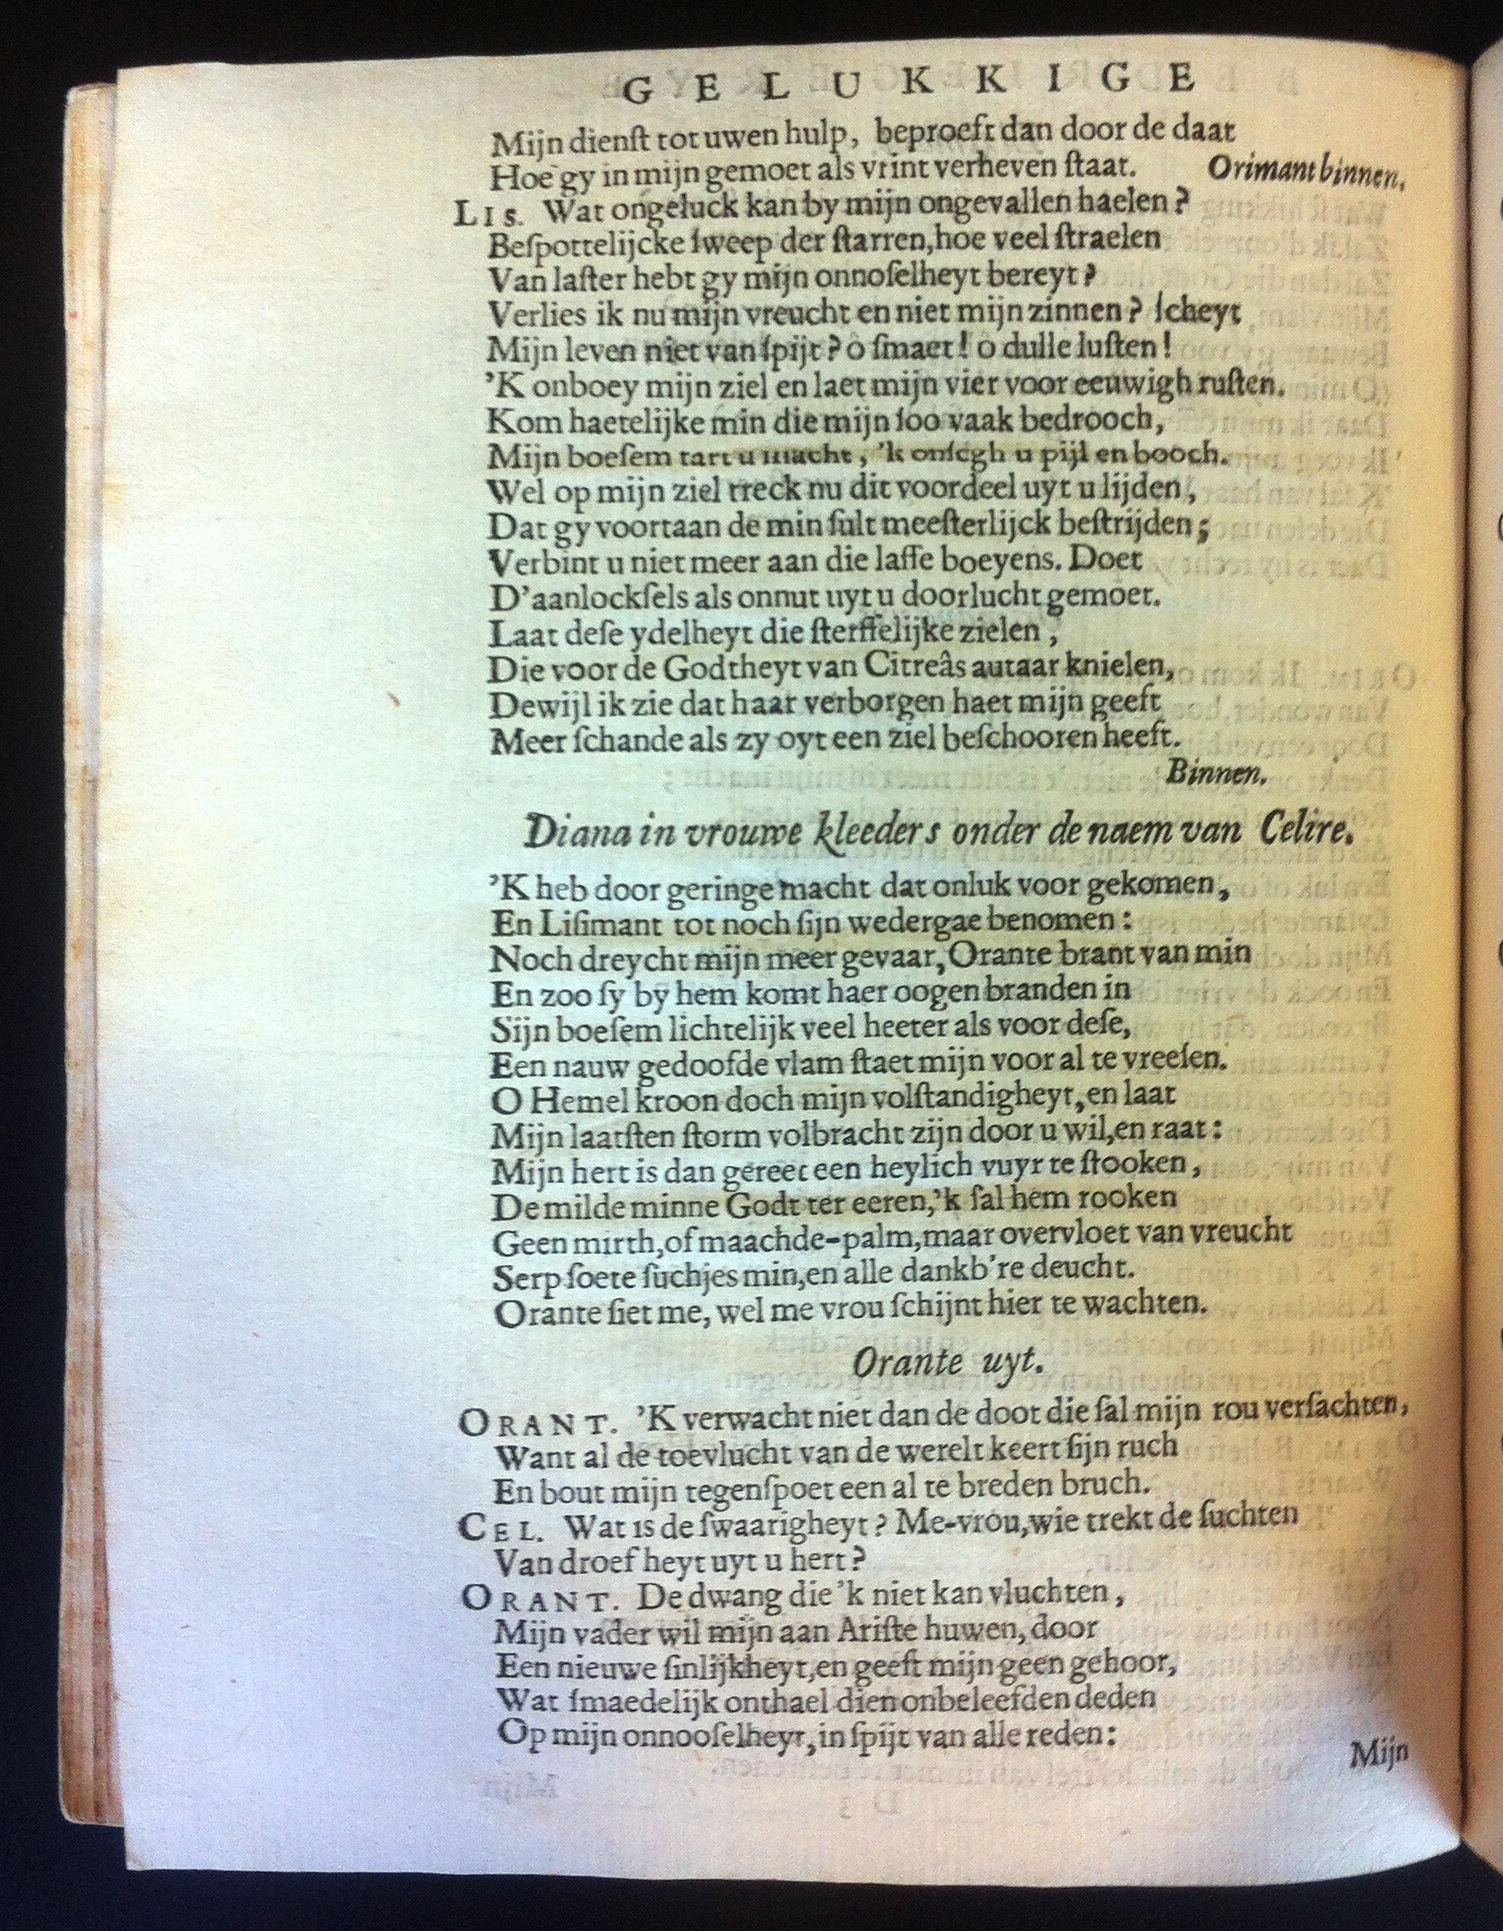 GELUKKIGE
Mijn dienſt tot uwen hulp, beproeft dan door de daat
Hoe gy in mijn gemoet als vrint verheven ſtaat. Orimant binnen.
LIS. Wat ongeluck kan by mijn ongevallen haelen?
Beſpottelijcke ſweep der ſtarren, hoe veel ſtraelen
Van laſter hebt gy mijn onnoſelheyt bereyt?
Verlies ik nu mijn vreucht en niet mijn zinnen? ſcheyt
Mijn leven niet van ſpijt? ô ſmaet! ô dulle luſten!
’K onboey mijn ziel en laet mijn vier voor eeuwigh ruſten.
Kom haetelijke min die mijn ſoo vaak bedrooch,
Mijn boeſem tart u macht, ’k onſegh u pijl en booch.
Wel op mijn ziel treck nu dit voordeel uyt u lijden,
Dat gy voortaan de min ſult meeſterlijck beſtrijden;
Verbint u niet meer aan die laffe boeyens. Doet
D’aanlockſels als onnut uyt u doorlucht gemoet.
Laat deſe ydelheyt die ſterffelijke zielen,
Die voor de Godtheyt van Citreâs autaar knielen,
Dewijl ik zie dat haar verborgen haet mijn geeft
Meer ſchande als zy oyt een ziel beſchooren heeft.
Binnen.
Diana in vrouwe kleeders onder de naem van Celire.
’K heb door geringe macht dat onluk voor gekomen,
En Liſimant tot noch ſijn wedergae benomen:
Noch dreycht mijn meer gevaar, Orante brant van min
En zoo ſy by hem komt haer oogen branden in
Sijn boeſem lichtelijk veel heeter als voor deſe,
Een nauw gedoofde vlam ſtaet mijn voor al te vreeſen.
O Hemel kroon doch mijn volſtandigheyt, en laat
Mijn laatſten ſtorm volbracht zijn door u wil, en raat:
Mijn hert is dan gereet een heylich vuyr te ſtooken,
De milde minne Godt ter eeren, ’k ſal hem rooken
Geen mirth, of maachde-palm, maar overvloet van vreucht
Serp ſoete ſuchjes min, en alle dankb’re deucht.
Orante ſiet me, wel me vrou ſchijnt hier te wachten.
Orante uyt.
ORANT. ’K verwacht niet dan de doot die ſal mijn rou verſachten,
Want al de toevlucht van de werelt keert ſijn ruch
En bout mijn tegenſpoet een al te breden bruch.
CEL. Wat is de ſwaarigheyt? Me-vrou, wie trekt de ſuchten
Van droefheyt uyt u hert?
ORANT. De dwang die ’k niet kan vluchten,
Mijn vader wil mijn aan Ariſte huwen, door
Een nieuwe ſinlijkheyt, en geeft mijn geen gehoor,
Wat ſmaedelijk onthael dien onbeleefden deden
Op mijn onnooſelheyt, in ſpijt van alle reden:
Mijn